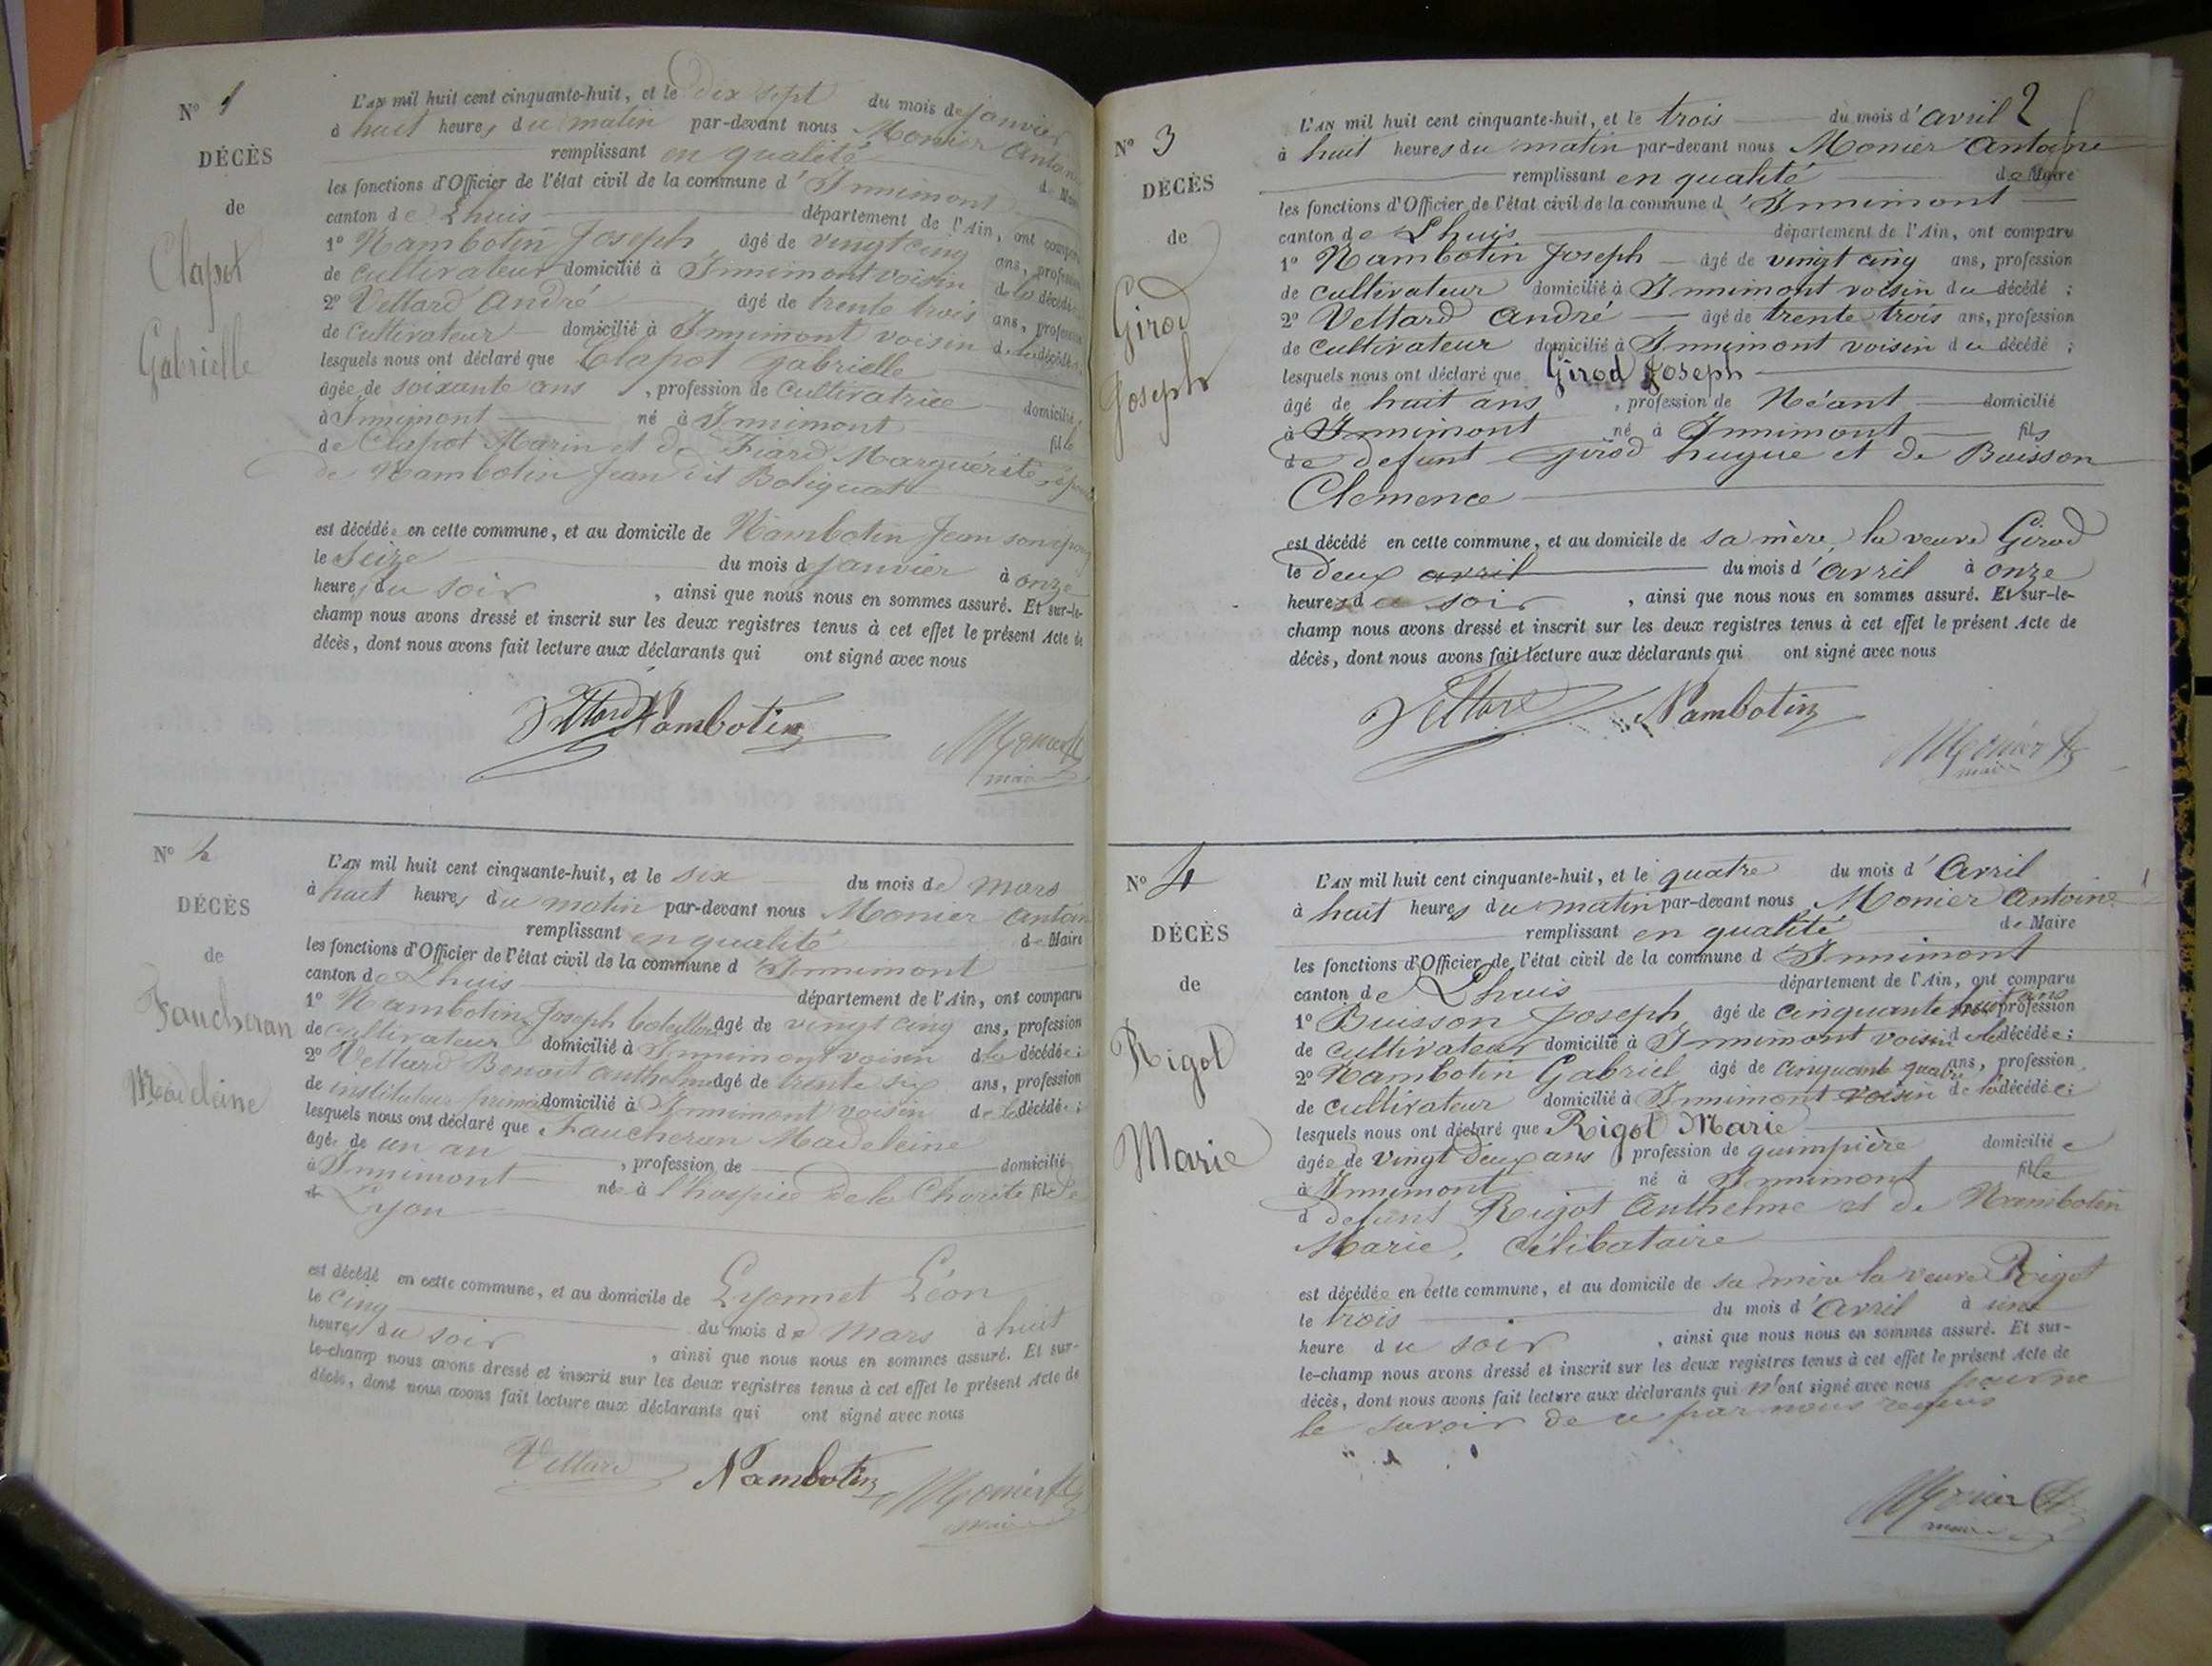 N° 1
DÉCÈS
de
Clapot
Gabrielle
L'AN mil huit cent cinquante-huit, et le dix sept du mois de janvier
à huit heures du matin par-devant nous Monier Antoine
remplissant en qualité de Maire
les fonctions d'Officier de l'état civil de la commune d'Innimont
canton de Lhuis département de l'Ain, ont comparu
1° Nambotin Joseph âgé de vingt cinq ans, profession
de cultivateur domicilié à Innimont voisin de la décédée
2° Vettard André âgé de trente trois ans, profession
de cultivateur domicilié à Innimont voisin de la décédée
lesquels nous ont déclaré que Clapot gabrielle
âgée de soixante ans, profession de cultivatrice domicilié
à Innimont né à Innimont fille
de Clapot Marin et de Fiard Marguérite, épouse
de Nambotin Jean dit Boliquat
est décédée en cette commune, et au domicile de Nambotin Jean son époux
le Seize du mois de janvier à onze
heures du soir, ainsi que nous nous en sommes assuré. Et sur-le-
champ nous avons dressé et inscrit sur les deux registres tenus à cet effet le présent Acte de
décès, dont nous avons fait lecture aux déclarants qui ont signé avec nous
Vettard Nambotin
Monier
maire
N° 2
DÉCÈS
de
Faucheran
Madeleine
L'AN mil huit cent cinquante-huit, et le six du mois de mars
à huit heures du matin par-devant nous Monier Antoine
remplissant en qualité de Maire
les fonctions d'Officier de l'état civil de la commune d'Innimont
canton de Lhuis département de l'Ain, ont comparu
1° Nambotin Joseph âgé de vingt cinq ans, profession
de cultivateur domicilié à Innimont voisin de la décédée;
2° Vettard Benoit anthelme âgé de trente six ans, profession
de instituteur primaire domicilié à Innimont voisin de la décédée;
lesquels nous ont déclaré que Faucheran Madeleine
âgée de un an, profession de domicilié
à Innimont née à l'hospice de la Charité fille de
de Lyon
est décédé en cette commune, et au domicile de Lyonnet Léon
le cinq du mois de mars à huit
heures du soir, ainsi que nous nous en sommes assuré. Et sur-
le-champ nous avons dressé et inscrit sur les deux registres tenus à cet effet le présent Acte de
décès, dont nous avons fait lecture aux déclarants qui ont signé avec nous
Vettard Nambotin Monier
maire
2
N° 3
DÉCÈS
de
Girod
Joseph
L'AN mil huit cent cinquante-huit, et le trois du mois d'avril
à huit heures du matin par-devant nous Monier Antoine
remplissant en qualité de Maire
les fonctions d'Officier de l'état civil de la commune d'Innimont
canton de Lhuis département de l'Ain, ont comparu
1° Nambotin Joseph âgé de vingt cinq ans, profession
de cultivateur domicilié à Innimont voisin du décédé;
2° Vettard André âgé de trente trois ans, profession
de cultivateur domicilié à Innimont voisin du décédé;
lesquels nous ont déclaré que Girod Joseph
âgé de huit ans, profession de Néant domicilié
à Innimont né à Innimont fils
de defunt Girod hugue et de Buisson
Clemence
est décédé en cette commune, et au domicile de sa mère, la veuve Girod
le deux avril du mois d'avril à onze
heures du soir, ainsi que nous nous en sommes assuré. Et sur-le-
champ nous avons dressé et inscrit sur les deux registres tenus à cet effet le présent Acte de
décès, dont nous avons fait lecture aux déclarants qui ont signé avec nous
Vettard Nambotin
Monier
maire
N° 4
DÉCÈS
de
Rigot
Marie
L'AN mil huit cent cinquante-huit, et le quatre du mois d'Avril
à huit heures du matin par-devant nous Monier Antoine
remplissant en qualité de Maire
les fonctions d'Officier de l'état civil de la commune d'Innimont
canton de Lhuis département de l'Ain, ont comparu
1° Buisson Joseph âgé de cinquante huit ans profession
de cultivateur domicilié à Innimont voisin de la décédée;
2° Nambotin Gabriel âgé de cinquante quatre ans, profession
de cultivateur domicilié à Innimont voisin de la décédée;
lesquels nous ont déclaré que Rigot Marie
âgée de vingt deux ans profession de guimpière domiciliée
à Innimont né à Innimont fille
d defunt Rigot Anthelme et de Nambotin
Marie, célibataire
est décédée en cette commune, et au domicile de sa mère la veuve Rigot
le trois du mois d'avril à une
heure du soir, ainsi que nous nous en sommes assuré. Et sur-
le-champ nous avons dressé et inscrit sur les deux registres tenus à cet effet le présent Acte de
décès, dont nous avons fait lecture aux déclarants qui n'ont signé avec nous pour ne
le savoir de ce par nous requis
Monier
maire